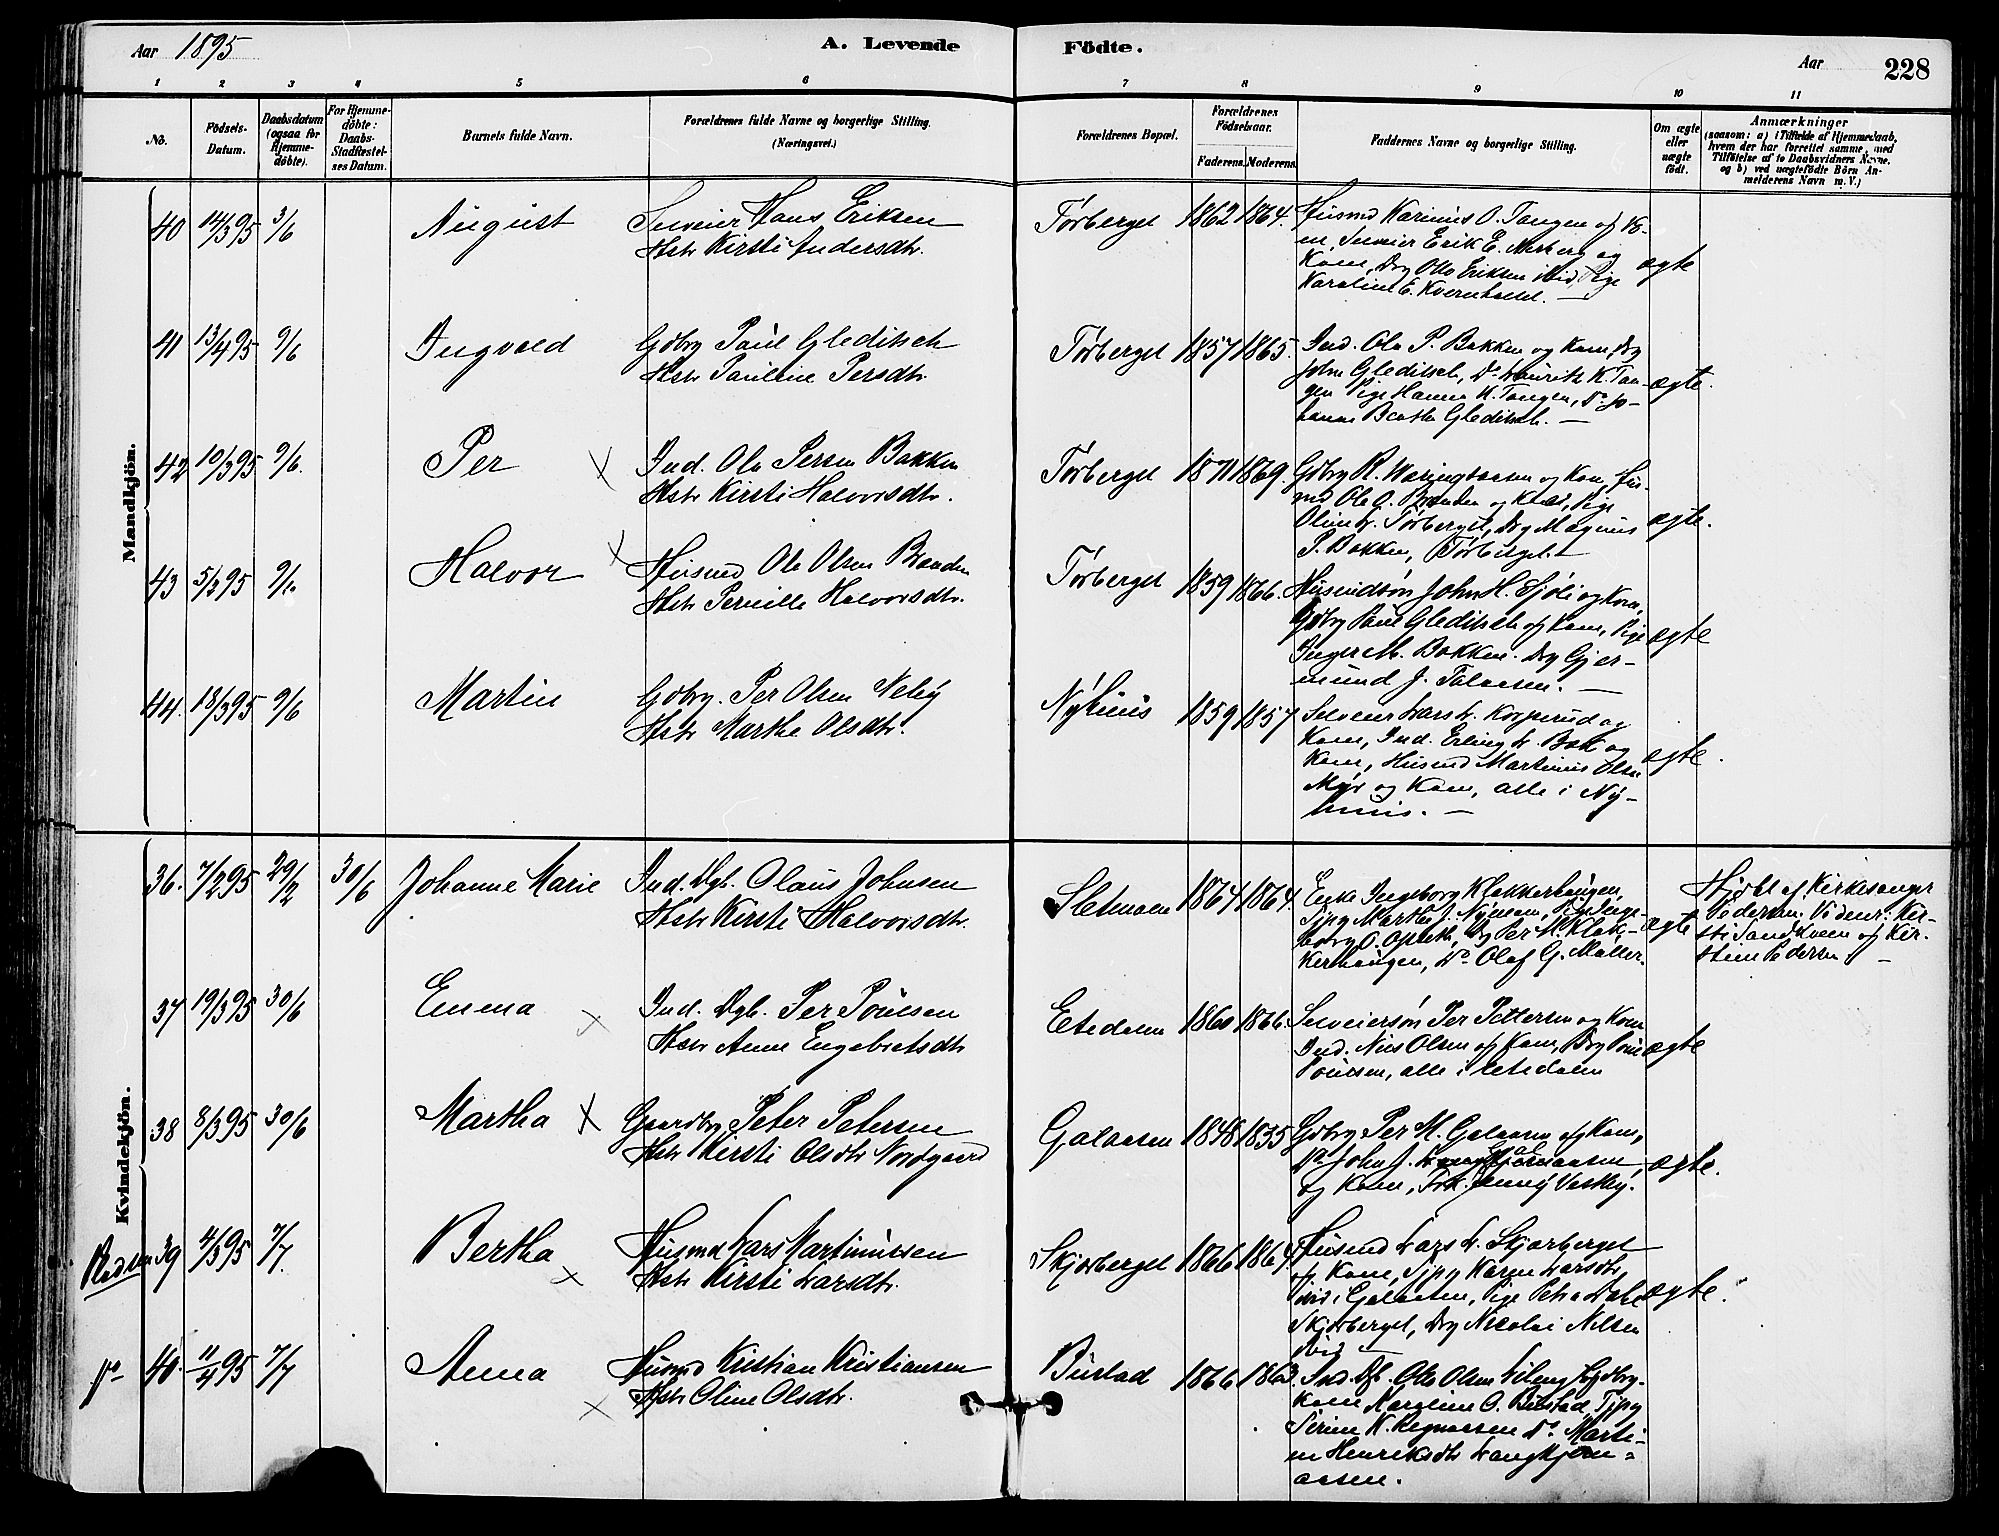 Aar 1895
A. Levende
Födte.
Aar
228
1 2 3 4 5 6 7 8 9 10 11
No.
Födsels-
Datum.
Daabsdatum
(ogsaa for
Hjemme-
döbte).
For Hjemme-
döbte:
Daabs-
Stadfæstel-
ses Datum.
Barnets fulde Navn.
Forældrenes fulde Navne og borgerlige Stilling.
(Næringsvei.)
Forældrenes Bopæl.
Forældrenes
Födselsaar.
Faderens. Moderens.
Faddernes Navne og borgerlige Stilling.
Om ægte
eller
uægte
födt.
Anmærkninger
(saasom: a) i Tilfælde af Hjemmedaab,
hvem der har forrettet samme, med
Tilföielse af to Daabsvidners Navne.
og b) ved uægtefödte Börn An-
melderens Navn m. V.)
Mandkjön.
40 14/3 95 3/6 August
Selveier Hans Eriksen
Hstr Kirsti Andersdtr.
Törberget 1862 1864.
Husmd Karinius O. Tangen og Ko-
ne, Selveier Erik E. Nesberg og
Kone, Brg Otto Eriksen ibid, Pige
Karoline E. Kvernholdt. —
ægte
41 13/4 95 9/6 Ingvald
Gdbrg Paul Gleditsch
Hstr Pauline Persdtr.
Törberget 1857 1865.
Ind. Ola P. Bakken og Kone, Brg
John Gleditsch, Do Laurits K. Tan-
gen Pige Hanna K. Tangen, Do Jo-
hanne Beathe Gleditsch. —
ægte.
42 10/3 95 9/6. Per
Ind. Ola Persen Bakken
Hstr Kirsti Halvorsdtr.
Törberget 1871 1869.
Gdbrg R. og Kone, Hus-
md Ole O. Branden og Pige
Oline L. Törberget, Brg Magnus
P. Bakken, Törberget. —
ægte.
43 5/3 95 9/6 Halvor
Husmd Ole Olsen Branden
Hstr Pernille Halvorsdtr.
Törberget 1859 1866.
Husmdsön John H. Sjöli og Kone,
Gdbrg Paul Gleditsch og Kone, Pige
Inger M. Bakken. Brg Gjer-
mund J. —
ægte
44. 18/3 95 9/6 Martin
Gdbrg. Per Olsen Neby
Hstr Marthe Olsdtr.
Nyhuus 1859 1857
Selveier Lars L. Korperud og
Kone, Ind. Erling L. Bak og
Kone, Husmd Martinus Olsen
Myr og Kone, alle i Ny-
huus. —
ægte.
Kvindekjön.
36. 7/2 95 29/2 30/6 Johanne Marie
Ind. Dgb. Olaus Johnsen
Hstr Kirsti Halvorsdtr.
Sletmoen 1864 1864.
Enke Ingeborg Klakkerhaugen,
Tjpg Marthe J. Nymoen, Pige Inge-
borg O. Opsæth, Brg Per M. Klak-
kerhaugen, Do Olaf G. Möller.
ægte
Hjdbt af Kirkesanger
Pedersen. Vidner: Kir-
sti Sandkveen og Kir-
stine Pedersen —
37 19/3 95 30/6 Emma
Ind. Dgb. Per Poulsen
Hstr Anne Engebretsdtr
Eltdalen 1860 1866.
Selveiersön Per Pettersen og Kone
Ind. Nils Olsen og Kone, Brg Poul
Poulsen, alle i Eltdalen
ægte
38 8/3 95 30/6 Martha
Gaardbrg Peter Petersen
Hstr Kirsti Olsdtr Nordgaard
Galaasen 1848 1855
Gdbrg Per M. Galaasen og Kone,
Do John J.
og Kone, Frk. Jenny Vestby.
ægte.
39 4/3 95 7/7. Bertha
Husmd Lars Martinussen
Hstr Kirsti Larsdtr.
Skjærberget 1866 1864.
Husmd Lars L. Skjærberget
og Kone, Tjpg Karen Larsdtr
ibid i Galaasen, Pige Petra
Skjærberget, Brg Nicolai Nilsen
ibid —
ægte.
Do 40. 11/4 95 7/7 Anna
Husmd Kristian Kristiansen
Hstr Oline Olsdtr.
Bustad 1866 1863.
Ind. Dgb. Otto Olsen Gdbrg.
Kone Karoline O. Bustad, Tjpg
Serine K. Regnaasen Do Marti-
ne Henriksdtr Langkjern-
aasen.